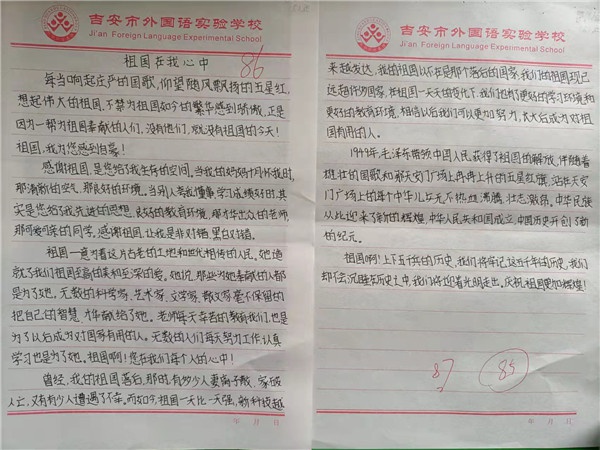 吉安市外国语实验学校
Ji'an Foreign Language Experimental School
祖国在我心中
86
每当响起庄严的国歌,仰望随风飘扬的五星红,
想起伟大的祖国,不禁为祖国如今的繁华感到骄傲,正是
因为一帮为祖国奉献的人们,没有他们,就没有祖国的今天!
祖国,我为您感到自豪!
感谢祖国,是您给了我生存的空间。当我的妈妈十月怀我时,
那清新的空气,那良好的环境。当别人夸我懂事,学习成绩好时,其
实是您给了我先进的思想,良好的教育环境,那才华出众的老师,
那可爱可亲的同学,感谢祖国,让我是非对错,黑白对错。
祖国一意为着这片古老的土地和世代相传的人民。她造
就了我们祖国至高的美和至深的爱。她说,那些为她奉献的人都
是为了她。无数的科学家,艺术家,文学家,散文家毫不保留的
把自己的智慧,才华献给了她。老师每天辛苦的教育我们,也是
为了以后成为对国家有用的人。无数的人们每天努力工作,认真
学习也是为了她。祖国啊!您在我们每个人的心中!
曾经,我的祖国落后,那时,有多少人妻离子散,家破
人亡,又有多少人遭遇了不幸。而如今,祖国一天比一天强,新科技越
年 月 日
吉安市外国语实验学校
Ji'an Foreign Language Experimental School
来越发达,我的祖国以不在是那个落后的国家,我们的祖国现已
远超许多国家,在祖国一天天的变化下,我们也有了更好的学习环境和
更好的教育环境,相信以后我们可以更加努力,长大后成为对祖
国有用的人。
1949年,毛泽东带领中国人民获得了祖国的解放,伴随着
雄壮的国歌和那天安门广场上冉冉上升的五星红旗,站在天安
门广场上的每个中华儿女无不热血沸腾,壮志激昂。中华民族
从此迎来了新的辉煌,中华人民共和国成立,中国历史开创了新
的纪元。
祖国啊!上下五千的历史,我们将牢记这五千年的历史,我们
却不会沉睡在历史之中,我们将迎着光明走出,庆祝祖国更加辉煌!
87
85
年 月 日